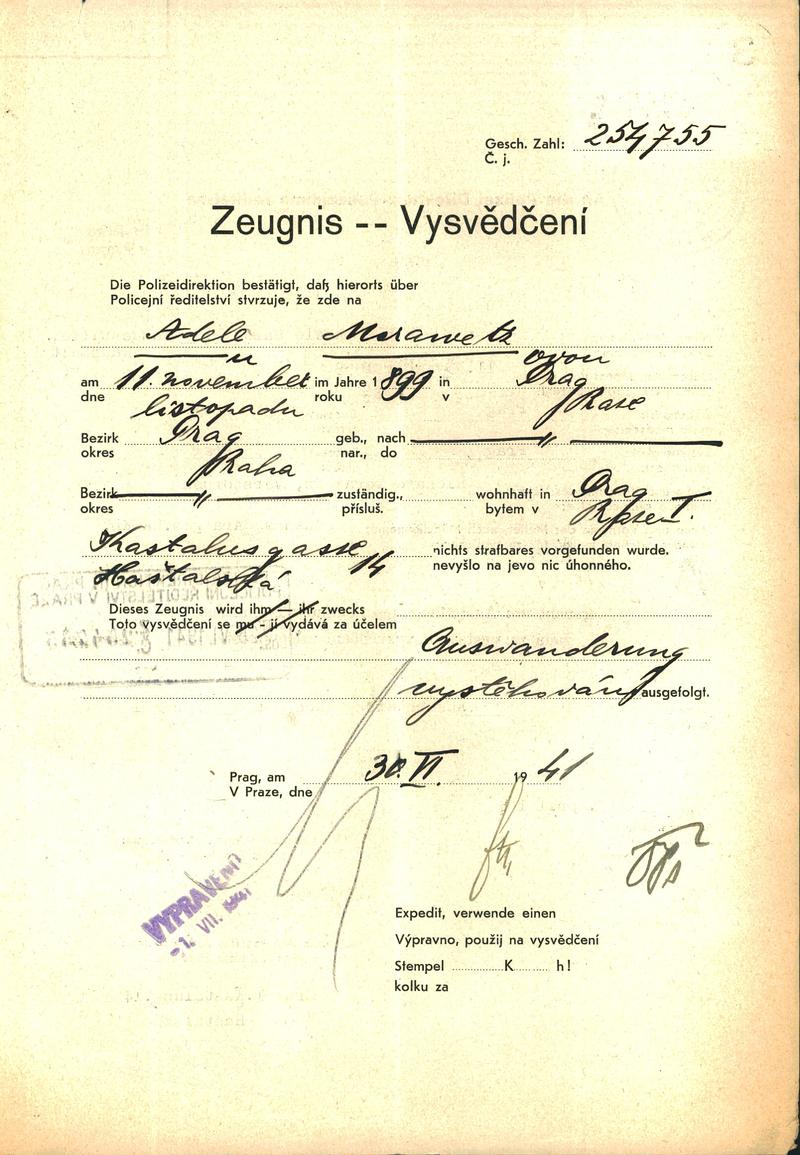 Gesch. Zahl: 254755
Č. j.
Zeugnis -- Vysvědčení
Die Polizeidirektion bestätigt, daß hierorts über
Policejní ředitelství stvrzuje, že zde na
Adele Morawetz
ovou
am 11. november im Jahre 1899 in Prag
dne listopadu roku v Praze
Bezirk Prag geb., nach
okres Praha nar., do
Bezirk zuständig., wohnhaft in Prag
okres přísluš. bytem v Praze I.
Kastalusgasse nichts strafbares vorgefunden wurde.
Haštalská 14 nevyšlo na jevo nic úhonného.
Dieses Zeugnis wird ihm — ihr zwecks
Toto vysvědčení se mu - jí vydává za účelem
Auswanderung
vystěhování ausgefolgt.
Prag, am 30. VI. 1941
V Praze, dne
VYPRAVENO
-1. VII. 1941
Expedit, verwende einen
Výpravno, použij na vysvědčení
Stempel K h!
kolku za